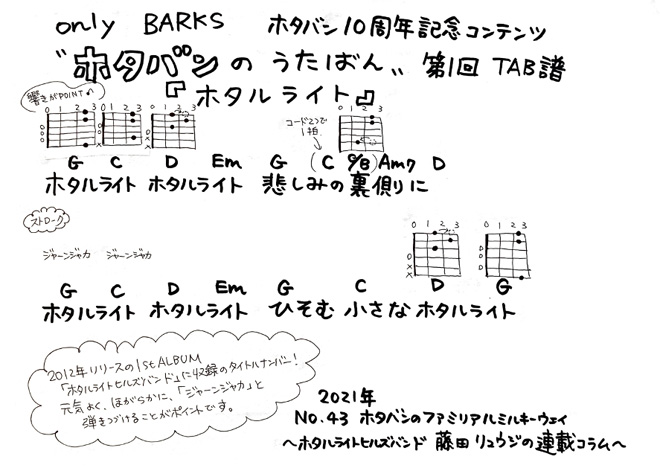 only BARKS ホタバン10周年記念コンテンツ
"ホタバンのうたばん„ 第1回 TAB譜
『ホタルライト』
響きがPOINT♪
0 1 2 3 0 1 2 3 0 1 2 3
コード2つで
1拍
0 1 2 3
G C D Em G (C G/B) Am7 D
ホタルライト ホタルライト 悲しみの裏側りに
ストローク
ジャーンジャカ ジャーンジャカ
0 1 2 3 0 1 2 3
G C D Em G C D G
ホタルライト ホタルライト ひそむ 小さな ホタルライト
2012年リリースの1stALBUM
「ホタルライトヒルズバンド」に収録のタイトルナンバー!
元気よく、ほがらかに、「ジャーンジャカ」と
弾きつづけることがポイントです。
2021年
NO.43 ホタベシのファミリアルミルキーウェイ
〜ホタルライトヒルズバンド 藤田リュウジの連載コラム〜